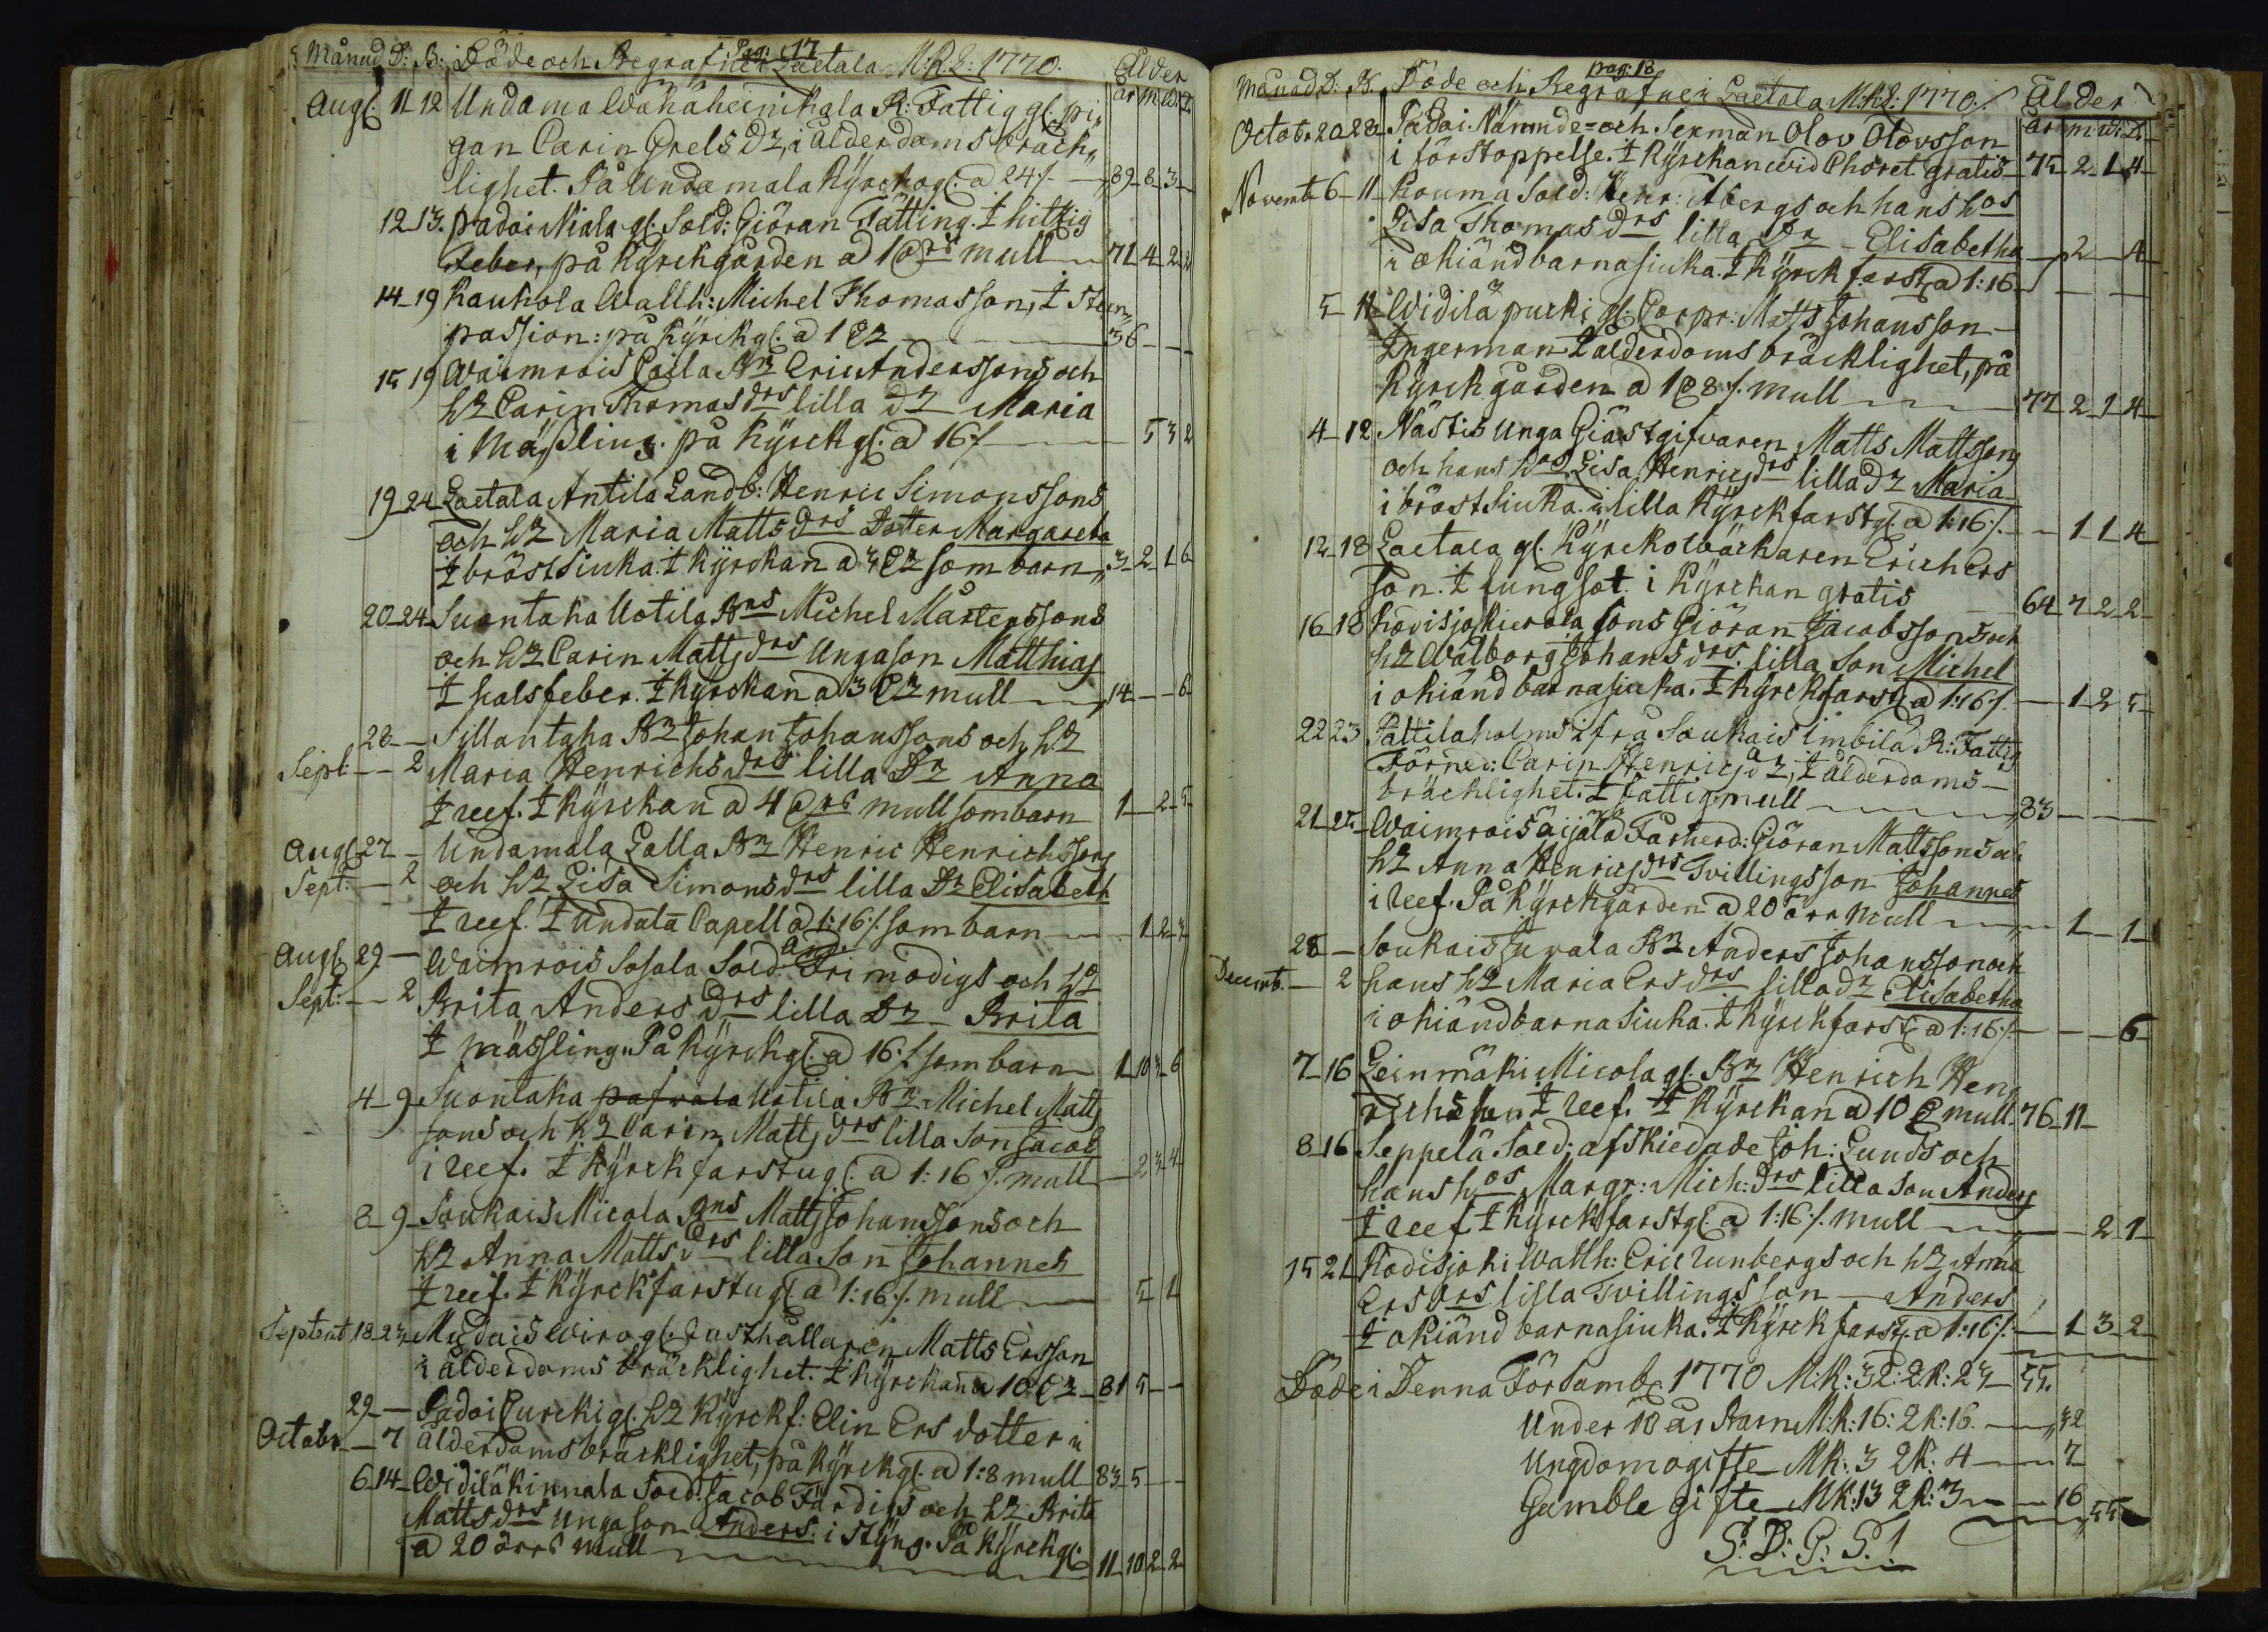 Pag: 17
Månad D: B: Döde och Begrafne i Laetala M:K:L: 1770. Ålder
år m w D
Augl. 11 12 Undamala Wähäheinikala R: Fattig gl. pi„
gan Carin Grels Dr, i ålderdoms bräck„
lighet. På Undamala Kyrckogl: a 24 /. 89 8 3
12 13. padoi Niala gl. Sold: Giöran Tätting. I hitzig
feber, på kyrckgården a 1 mull 71 4 2 2
14 19 Kaukola Wallk: Michel Thomasson, I Steen„
passion: på Kyrckgl. a 1 56
15 19 Waimrois Coila Bz Eric Anderssons och
hz Carin Thomas drs lilla dz Maria
i Mässling. på Kyrckgl. a 16 /. 5 3 2
19 24 Laetala Antila Landb: Henric Simonssons
och hz Maria Matts drs Dotter Margareta
I bröstsiuka. I kyrckan a 3 som barn„ 3 2 1 6
20 24 Suontaka Uotila Bns Michel Mårtenssons
och hz Carin Matts drs Unga son Matthias
I halsfeber. I kyrckan a 3 mull 14 6
28 Sillantaka Bz Johan Johanssons och hz
Sept: 2 Maria Henrichs drs lilla Dr Anna
I reef. I Kyrckan a 4 mull som barn 1 2 5
Augl. 27 Undamala Lalla Bz Henric Henrichssons
Sept: 2 och hz Lisa Simons drs lilla Dr Elisabeth
I reef. I Undala Capell a 1:16 /. som barn 1 2
Augl. 29 Waimrois Sosala Sold: And. Frimodigs och hz
Sept: 2 Brita Anders Drs lilla Dz Brita
I mässling„ På Kyrckgl. a 16 /. som barn 1 10 3 6
4 9 Suontaka Uotila Bz Michel Matts
sons och hz Carin Matts drs lilla Son Jacob
i reef. I Kyrckfarstugl: a 1:16 /. mull 2 3 4
8 9 Soukais Micola Bns Matts Johanssons och
hz Anna Matts drs lilla Son Johannes
I reef. I Kyrckfarstugl a 1:16 /. mull 5 1
Septembr 18 23 Mudais Wiro gl. Rusthållaren Matts Ersson
i ålderdoms bräcklighet. I Kyrckan a 10 81 5
29 Padoi Purcki gl. hz Kyrckf: Elin Ers dotter i
Octobr 7 ålderdoms bräcklighet, på Kyrckgl. a 1:8 mull 83 5
6 14 Widilä Kinnala Sold: Jacob Färdigs och hz Brita
Matts drs unga son Anders. i Styng. På Kyrckgl:
a 20 öres mull 11 10 2 2
pag: 18
Månad D: B. Döde och Begrafne i Laetala M:K:L: 1770. Ålder
år m w D
Octobr 20 28 Padoi Nämnde= och Sexman Olov Olovsson
i förstoppelse. I kyrckan wid Choret gratis 75 2 1 4
Novemb 6 11 Kouma Sold: Henr: Åbergs och hans hos
Lisa Thomas drs lilla Dz Elisabetha
i okiänd barnasiuka. I Kyrckfarst. a 1:16 2 4
5 11 Widilä purcki gl. Corpr: Matts Johansson
Ingerman I ålderdoms bräcklighet, på
Kyrckgården a 1 8 /. mull 77 2 1 4
4 12 Nästis unga Giästgifwaren Matts Mattsons
och hans hos Lisa Henrics drs lilla dz Maria
i bröstsiuka. i lilla Kyrckfarstgl. a 1:16 /. 1 1 4
12 18 Laetala gl. Kyrckowäckaren Erich Ers
son. I Lungsot. i Kyrckan gratis 64 7 2 2
16 18 Kodisjoki erola sons Giöran Jacobssons och
hz Walborg Johans drs. lilla Son Michel
i okiänd barnasiuka. I Kyrckfarst. a 1:16 /. 1 2 5
22 23 Pättilaholms ifrå Soukais Simbila R: Fattig
Förned: Carin Henrics dz, I ålderdoms
bräcklighet. I fattig mull 83
21 25 Waimrois äijälä Fårherd: Giöran Mattsons och
hz Anna Henrics drs Tvillingsson Johannes
i reef. På Kyrckgården a 20 öre mull 1 1
28 Soukais Juvala Bz Anders Johansson och
Decemb. 2 hans hz Maria Ers drs lilla dz Elisabetha
i okiänd barnasiuka. I Kyrckfarst. a 1:16 /. 6
7 16 Leinmäki Micola gl. Bz Henrich Hen
richsson I reef. I Kyrckan a 10 mull 76 11
8 16 Seppelä Sold: afskiedade Joh: Lunds och
hans hos Margr: Mich: drs lilla son Anders
I reef I Kyrckfarstgl. a 1:16 /. mull 2 1
15 21 Kodisjoki Wallh: Eric unbergs och hz Anna
Ers drs lilla Tvillingsson Anders
I okiänd barnasiuka. I Kyrckfarst. a 1:16 /. 1 3 2
Döde i Denna Försambl. 1770 M:K: 32: Q.K: 23 55.
Under 10 år Barn M:K: 16: Q K: 16. 32
Ungdom ogifte MK: 3 QK: 4 7
Gamble gifte MK: 13 QK: 3 16 55
S: D: G: S!